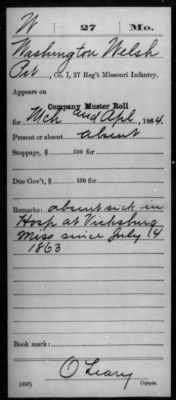 W 27 Mo.
Washington Welsh
Pvt, Co. I, 27 Reg't Missouri Infantry.
Appears on
Company Muster Roll
for Mch and Apl, 1864.
Present or absent absent
Stoppage, $ 100 for
Due Gov't, $ 100 for
Remarks: absent sick in
Hosp at Vicksburg
Miss since July 14
1863
Book mark:
O'Leary
(858) Copyist.